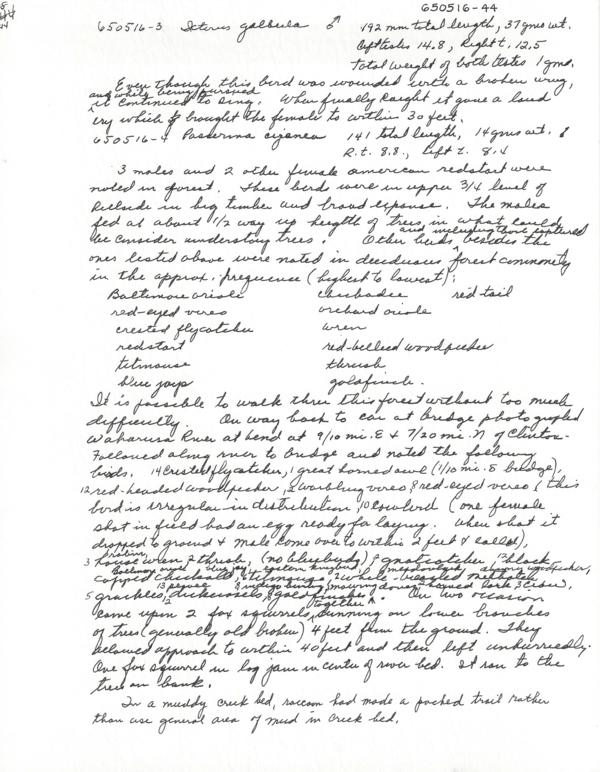 650516-44
650516-3 Icterus galbula ♂ 192 mm total length, 37 gms wt.
left testes 14.8, Right t. 12.5
total weight of both testes 1 gms.
Even though this bird was wounded with a broken wing,
and while being pursued
it continued to sing. When finally caught it gave a loud
cry which brought the female to within 30 feet.
650516-4 Passerina cyanea 141 total length, 14 gms wt. ♂
R.t. 8.8., left t. 8.4
3 males and 2 other female american redstart were
noted in forest. These birds were in upper 3/4 level of
in big timber and broad expanse. The males
fed at about 1/2 way up height of trees, in what could
be consider understory trees. Other birds, besides the
and including those captured
ones listed above were noted in deciduous forest community
in the approx. frequence (highest to lowest):
Baltimore oriole chickadee red tail
red-eyed vireo orchard oriole
crested flycatcher wren
redstart red-bellied woodpecker
titmouse thrush
blue jays goldfinch.
It is possible to walk thru this forest without too much
difficulty. On way back to car at bridge photographed
Wakarusa River at bend at 9/10 mi. E & 7/20 mi. N of Clinton.
Followed along river to bridge and noted the following
birds. 14 crested flycatcher, 1 great horned owl (1/10 mi. E bridge),
12 red-headed woodpecker, 2 warbling vireo, 8 red-eyed vireo (this
bird is irregular in distribution, 10 cowbird (one female
shot in field had an egg ready for laying. When shot it
dropped to ground & male come over to within 2 feet & called),
3 house wren, 2 thrush, (no bluebirds) gnatcatcher, 12 black
capped chickadee, titmouse, 2 white-breasted nuthatch,
5 grackles, dickcissels, goldfinches. On two occasion
together
came upon 2 fox squirrels, sunning on lower branches
of trees (generally old broken) 4 feet from the ground. They
allowed approach to within 40 feet and then left unhurriedly.
One fox squirrel in log jam in center of river bed. It ran to the
trees on bank.
In a muddy creek bed, raccoon had made a packed trail rather
than use general area of mud in creek bed.